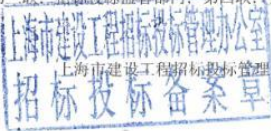 上海市建设工程招标投标管理办公室
上海市建设工程招标投标管理
招标投标备案章